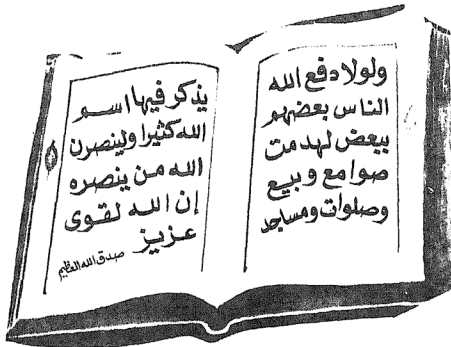 ولولا دفع الله
الناس بعضهم
ببعض لهدمت
صوامع وبيع
وصلوات ومساجد
يذكر فيها اسم
الله كثيرا ولينصرن
الله من ينصره
إن الله لقوى
عزيز
صدق الله العظيم